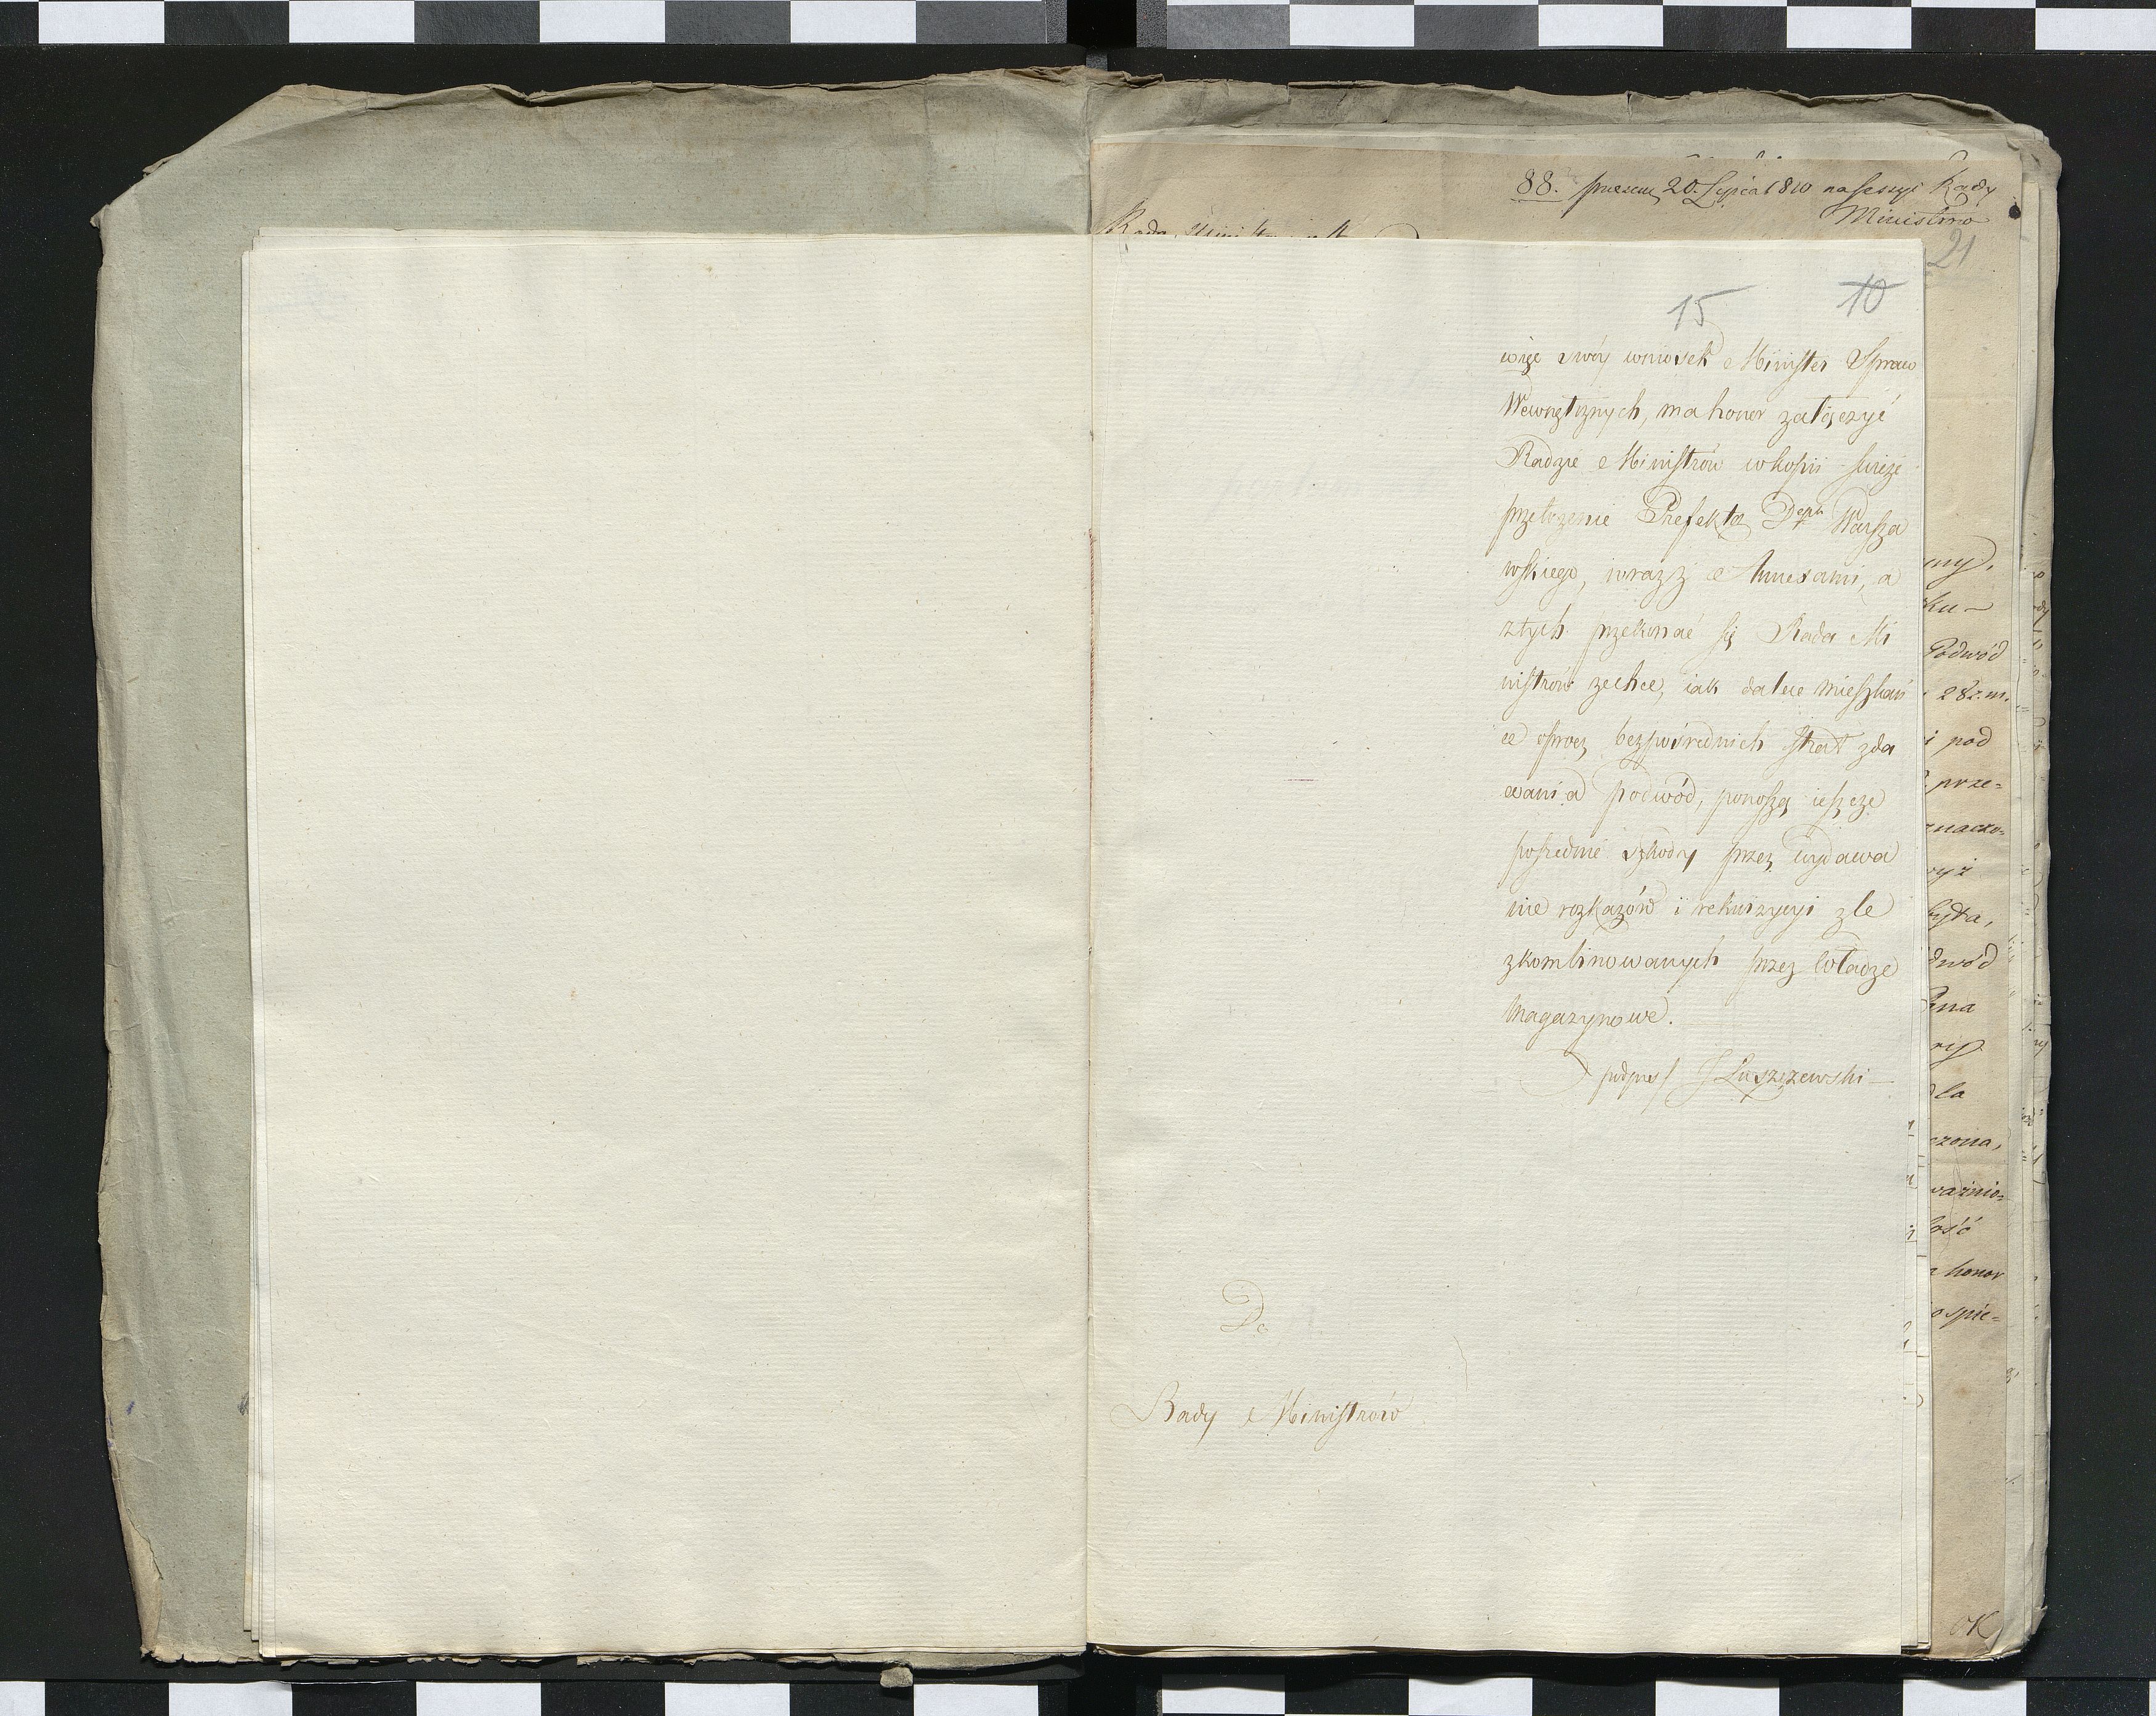 88. 20. Lipca 1810 na sessyi Rady
Ministrów
21
Rada
15 10
więc swóy wniosek Minister Spraw
Wewnętrznych, ma honor załączyć
Radzie Ministrów w kopii świeże
przełożenie Prefekta Dept Warsza
wskiego, wraz z Annexami, a
z tych przekonać się Rada Mi
nistrów zechce, iak dalece mieszkań
ce oprocz bezpośrednich strat z da
wania podwód, ponoszą ieszcze
pośrednie szkody przez wydawa
nie rozkazów i rekwizycyi zle
zkombinowanych przez Władze
Magazynowe.
podpis/ J Łuszczewski
Do
Rady Ministrów
Podwód
i pod
prze=
dwód
dla
honor